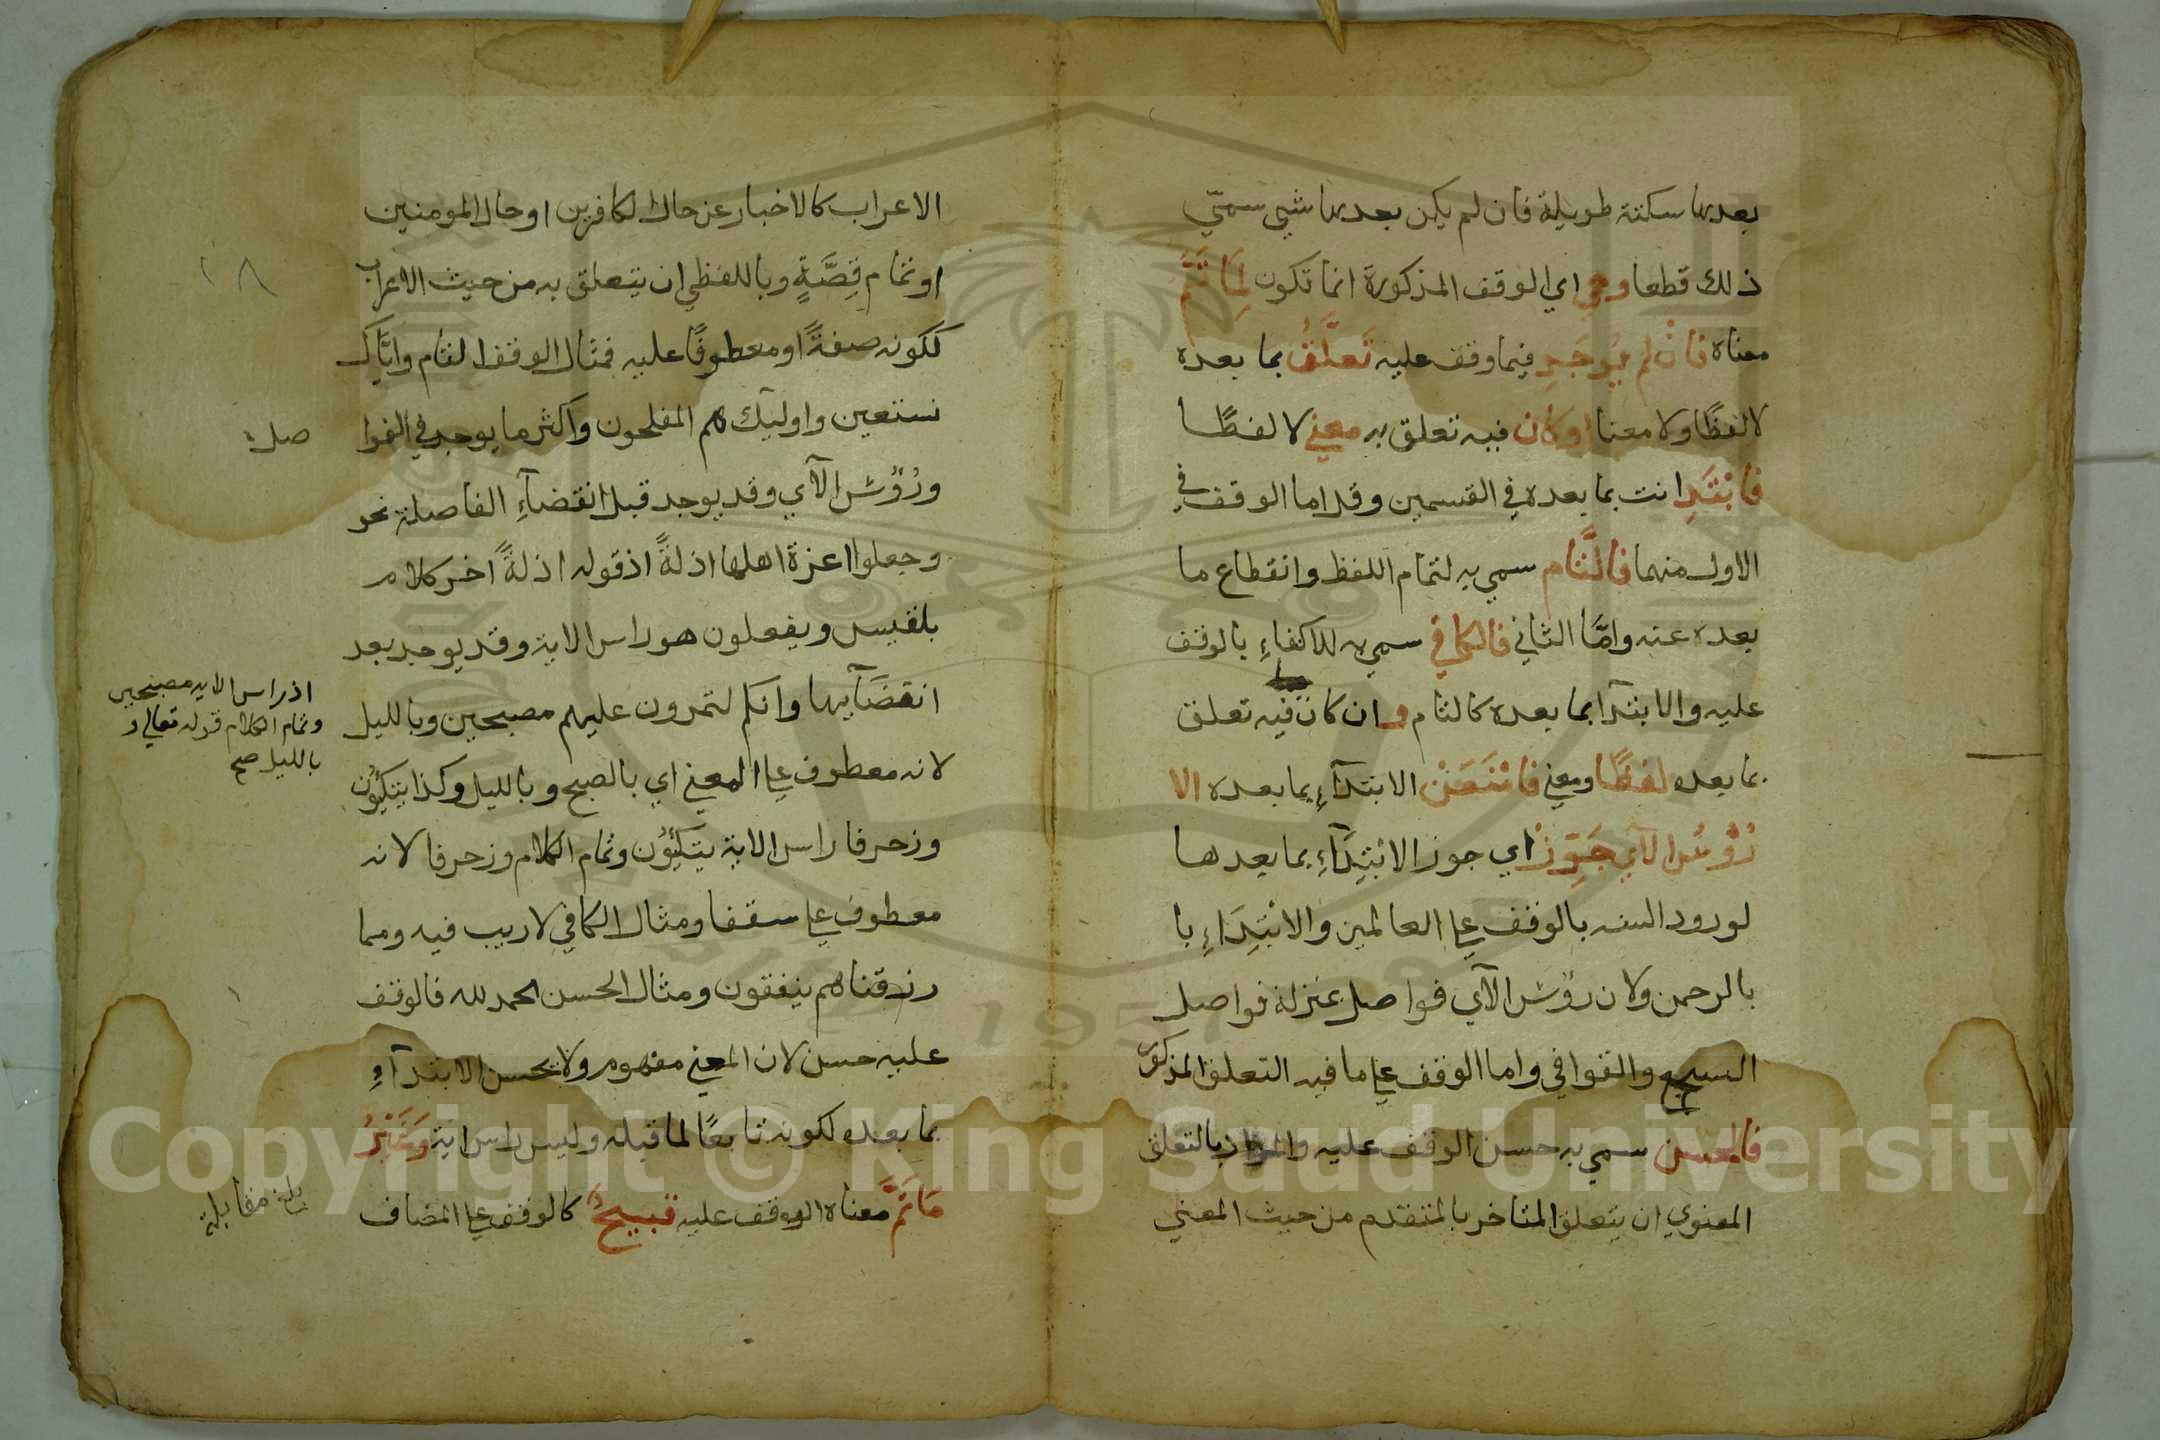 بعدها سكتة طويلة فان لم يكن بعدها شيي سمّي
ذلك قطعا وهي اي الوقف المذكورة انما تكون لِمَا تَمَّ
معناه فانْ لم يُوجَدِ فيما وقف عليه تَعَلُّقُ بما بعده
لا لفظًا ولا معنا او كان فيه تعلق به معني لا لفظًا
فابْتَدِ انت بما بعده في القسمين وقد اما الوقف في
الاول منهما فالتَّام سمي به لتمام اللفظ وانقطاع ما
بعده عنه وامّا الثاني فالكافي سمي به للاكتفاءِ بالوقف
عليه والابتدآ بما بعده كالتام وان كان فيه تعلق
بما بعده لفظًا ومعني فامْنَعَنْ الابتدآءِ بما بعده الا
رُؤُسَ الآي جَوِّزْ اي جوز الابْتِدَآءِ بما بعدها
لورود السنه بالوقف علي العالمين والابْتِدَاءِ با
بالرحمن ولان رؤُسَ الآي فواصل بمنزلة فواصل
السجع والقوافي واما الوقف علي ما فيه التعلق المذكور
فالحسن سمي به حسن الوقف عليه والمراد بالتعلق
المعنوي ان يتعلق المتاخر بالمتقدم من حيث المعني
الاعراب كالاخبار عن حال الكافرين او حال المومنين
او تمام قِصَّةٍ وباللفظي ان يتعلق به من حيث الاعراب
لكونه صفةً او معطوفًا عليه فمثال الوقف التام وايّاك
نستعين واوليك هم المفلحون واكثر ما يوجد في الفوا
صله
ورُؤُسَ الآي وقد يوجد قبل انقضآءِ الفاصلة نحو
وجعلوا اعزة اهلها اذلةً اذ قوله اذلةً اخر كلام
بلقيس ويفعلون هو راس الاية وقد يوجد بعد
انقضآيها وانكم لتمرون عليهم مصبحين وبالليل
اذ راس الايه مصبحين
وتمام الكلام قوله تعالي و
بالليل صح
لانه معطوف علي المعني اي بالصبح وبالليل وكذا يتكئِون
وزخرفا راس الاية يتكئِوُن وتمام الكلام وزخرفا لانه
معطوف علي سقفا ومثال الكافي لا ريب فيه ومما
رزقناهم ينفقون ومثال الحسن الحمد لله فالوقف
عليه حسن لان المعني مفهوم ولا يحسن الابتدآءِ
بما بعده لكونه تابعًا لما قبله وليس راس اية وَغَيْرُ
مَا تَمَّ معناه الوقف عليه قبيحٌ كالوقف علي المضاف
بلغ مقابلة
١٨
Copyright © King Saud University
1957